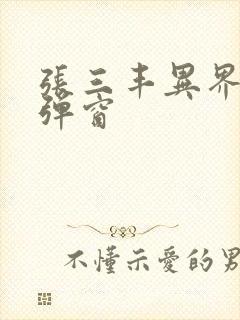 張三丰異界
彈窗
不懂示愛的男